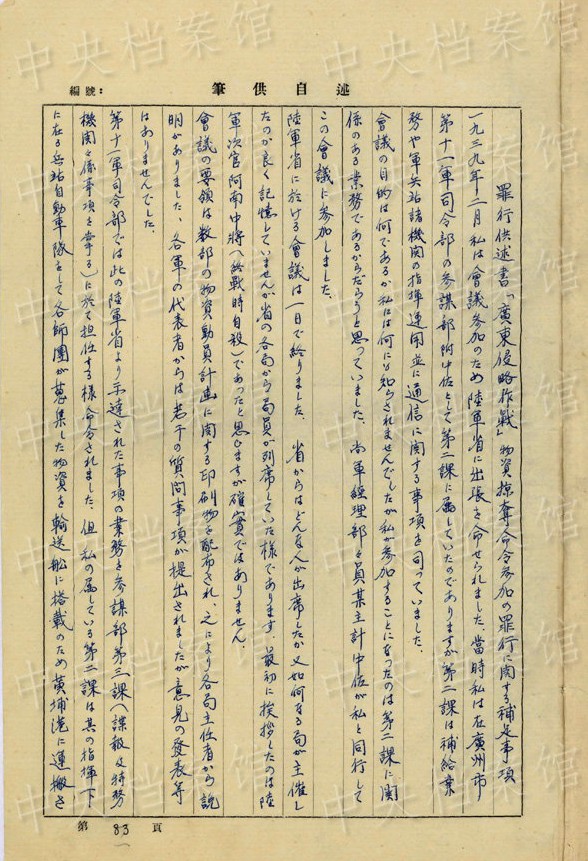 述自供筆
編號：
罪行供述書「廣東侵略作戰」物資掠奪命令参加の罪行に関する補足事項
一九三九年二月私は會議参加のため陸軍省に出張を命せられました、當時私は在廣州市
第二十一軍司令部の参謀部附中佐として第二課に属していたのでありますが第二課は補給業
務や軍兵站諸機関の指揮運用並に通信に関する事項を司っていました。
會議の目的は何であるか私には何にも知らされませんでしたが私が参加することになったのは第二課に関
係のある業務であるからだらうと思っていました、尚軍經理部々員某主計中佐が私と同行して
この會議に参加しました。
陸軍省に於ける會議は一日で終りました、省からはどんな人が出席したか又如何なる局が主催し
たのか良く記憶していませんが省の各局から局員が列席していた様であります、最初に挨拶したのは陸
軍次官阿南中將（終戰時自殺）であったと思ひますが確實ではありません。
會議の要領は数部の物資動員計画に関する印刷物を配布され、之により各局主任者から説
明がありました、各軍の代表者からは若干の質問事項が提出されましたが意見の發表等
はありませんでした。
第二十一軍司令部では此の陸軍省より示達された事項の業務を参謀部第三課（諜報及特務
機関関係事項を掌る）に於て担任する様命令されました、但し私の属している第二課は其の指揮下
に在る兵站自動車隊をして各師團が蒐集した物資を輸送船に搭載のため黄埔港に運搬さ
第 83 頁
中央档案馆